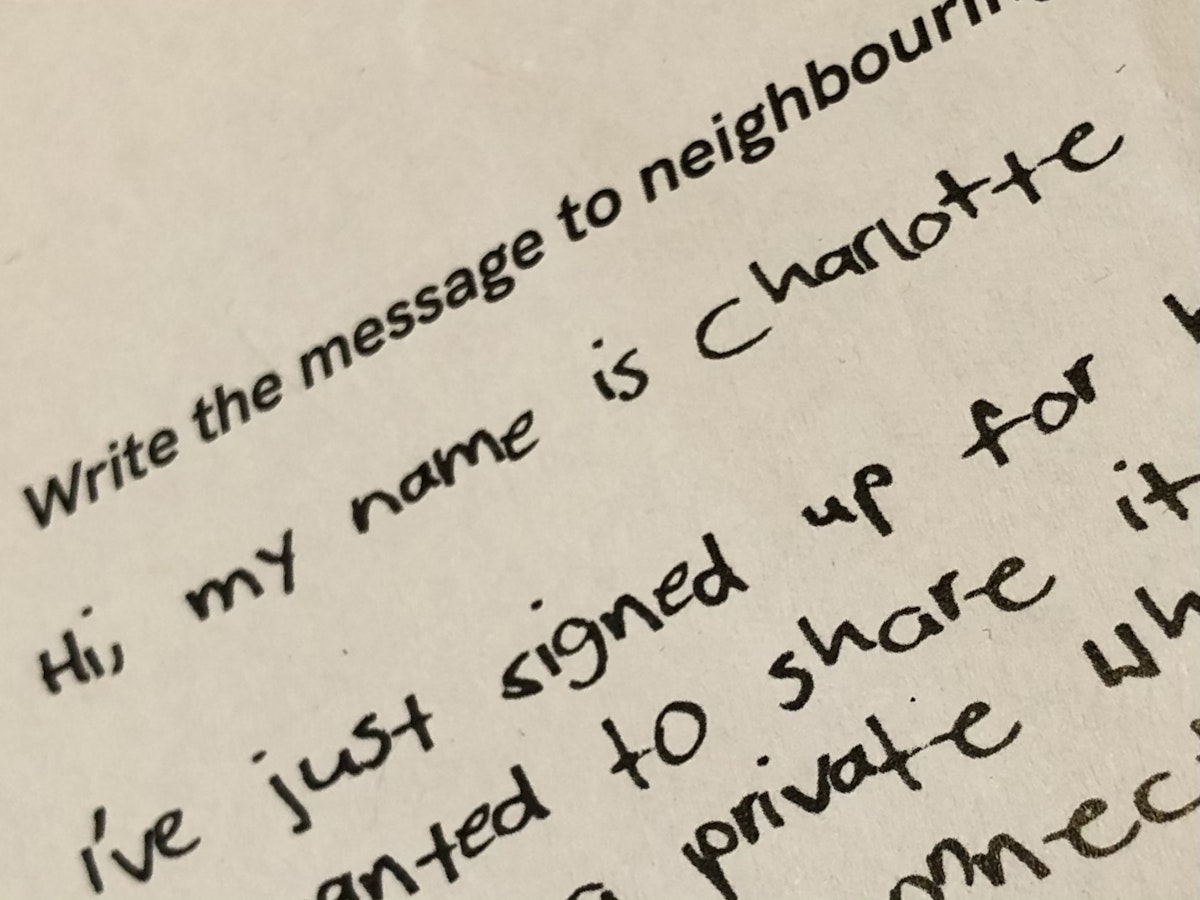 Write the message to neighbouring
Hi, my name is Charlotte
I've just signed up for
wanted to share it
a private